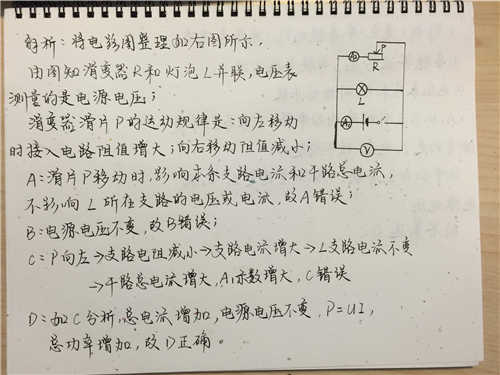 解析：将电路图整理如右图所示，
由图知滑变器R和灯泡L并联，电压表
测量的是电源电压；
滑变器滑片P的运动规律是：向左移动
时接入电路阻值增大；向右移动阻值减小；
A：滑片P移动时，影响本条支路电流和干路总电流，
不影响L所在支路的电压或电流，故A错误；
B：电源电压不变，故B错误；
C：P向左→支路电阻减小→支路电流增大→L支路电流不变
→干路总电流增大，A₁示数增大，C错误
D：如C分析，总电流增加，电源电压不变，P=UI，
总功率增加，故D正确。
A₂
P
R
L
A₁
V